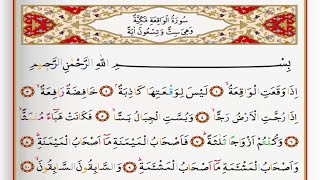 سُورَةُ الْوَاقِعَةِ مَكِّيَّةٌ
وَهِيَ سِتٌّ وَتِسْعُونَ اٰيَةً
بِسْــــمِ اللّٰهِ الرَّحْمٰنِ الرَّحٖيمِ
اِذَا وَقَعَتِ الْوَاقِعَةُۙ ﴿١﴾ لَيْسَ لِوَقْعَتِهَا كَاذِبَةٌۘ ﴿٢﴾ خَافِضَةٌ رَافِعَةٌۙ ﴿٣﴾
اِذَا رُجَّتِ الْاَرْضُ رَجًّاۙ ﴿٤﴾ وَبُسَّتِ الْجِبَالُ بَسًّاۙ ﴿٥﴾ فَكَانَتْ هَبَٓاءً مُنْبَثًّاۙ ﴿٦﴾
وَكُنْتُمْ اَزْوَاجًا ثَلٰثَةًؕ ﴿٧﴾ فَاَصْحَابُ الْمَيْمَنَةِ مَٓا اَصْحَابُ الْمَيْمَنَةِؕ ﴿٨﴾
وَاَصْحَابُ الْمَشْـَٔمَةِ مَٓا اَصْحَابُ الْمَشْـَٔمَةِؕ ﴿٩﴾ وَالسَّابِقُونَ السَّابِقُونَۙ ﴿١٠﴾